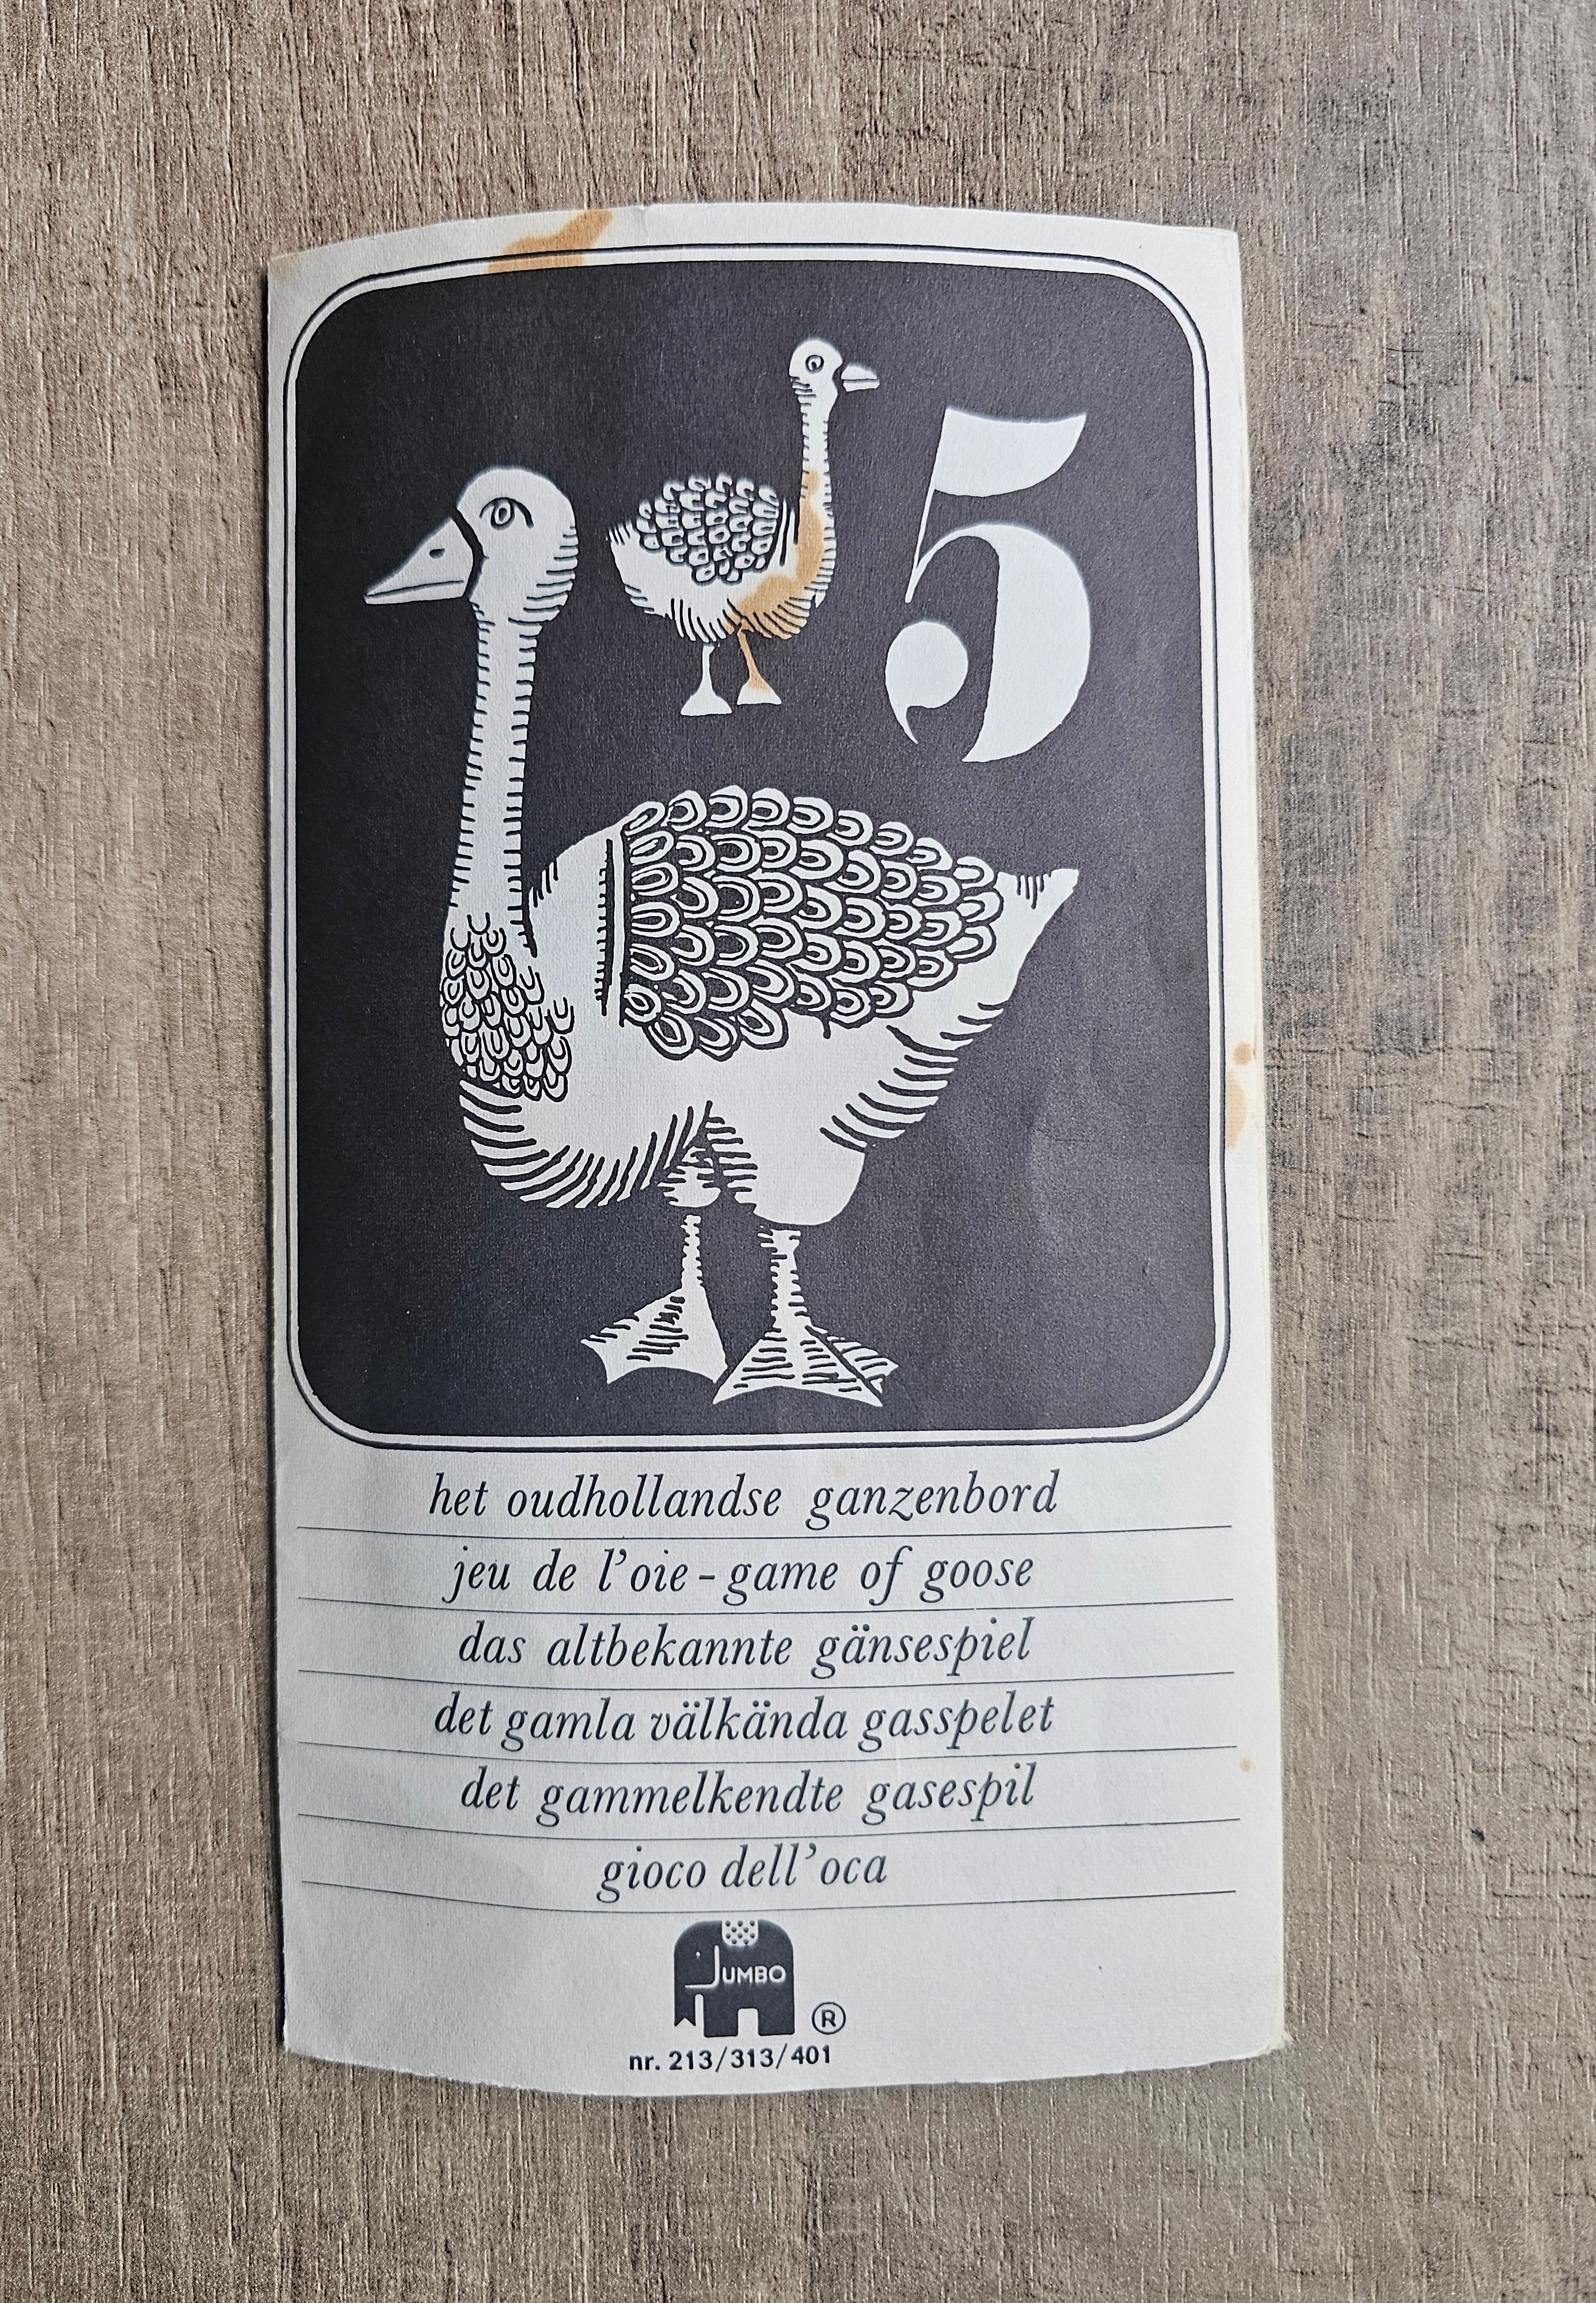 5
het oudhollandse ganzenbord
jeu de l'oie - game of goose
das altbekannte gänsespiel
det gamla välkända gasspelet
det gammelkendte gasespil
gioco dell'oca
JUMBO ®
nr. 213/313/401